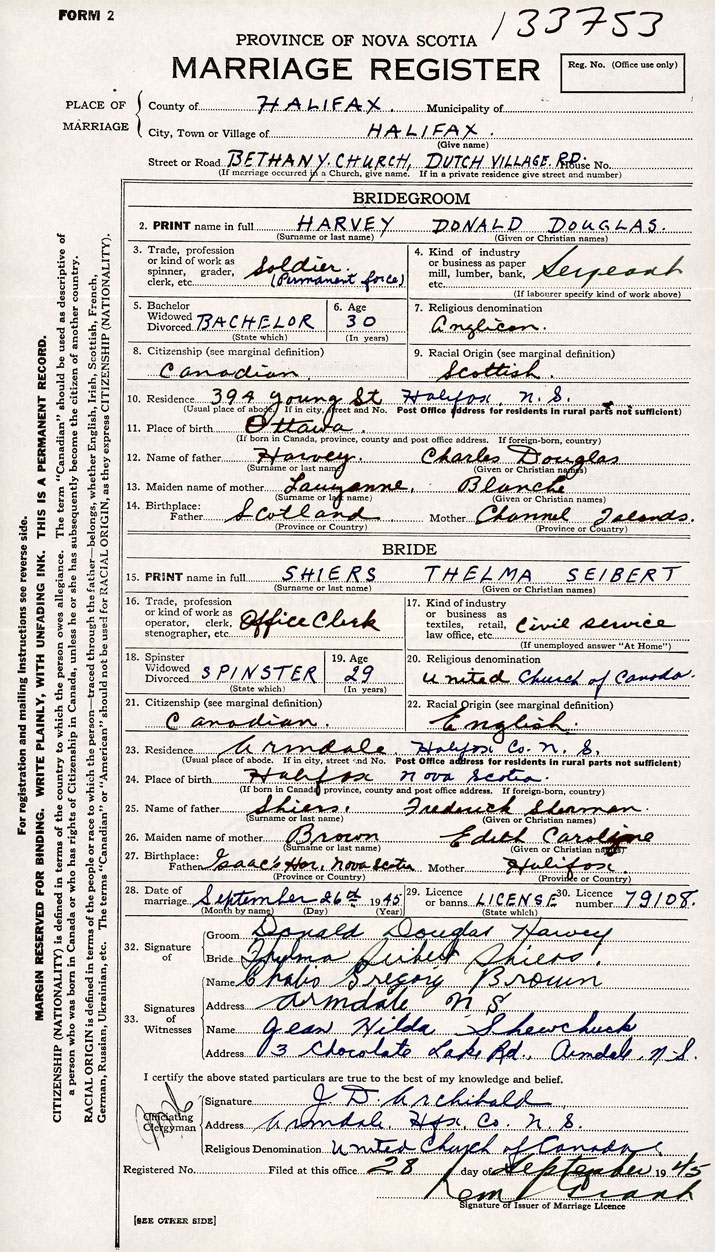 FORM 2
133753
PROVINCE OF NOVA SCOTIA
MARRIAGE REGISTER
Reg. No. (Office use only)
PLACE OF MARRIAGE
County of HALIFAX. Municipality of
City, Town or Village of HALIFAX.
(Give name)
Street or Road BETHANY. CHURCH, DUTCH VILLAGE. RD. House No.
(If marriage occurred in a Church, give name. If in a private residence give street and number)
BRIDEGROOM
2. PRINT name in full HARVEY DONALD DOUGLAS.
(Surname or last name) (Given or Christian names)
3. Trade, profession or kind of work as spinner, grader, clerk, etc. Soldier. (Permanent force)
4. Kind of industry or business as paper mill, lumber, bank, etc. Sergeant
(If labourer specify kind of work above)
5. Bachelor Widowed Divorced BACHELOR
(State which)
6. Age 30
(In years)
7. Religious denomination
Anglican.
8. Citizenship (see marginal definition)
Canadian
9. Racial Origin (see marginal definition)
Scottish.
10. Residence 394 Young St Halifax, N. S.
(Usual place of abode. If in city, street and No. Post Office address for residents in rural parts not sufficient)
11. Place of birth Ottawa.
(If born in Canada, province, county and post office address. If foreign-born, country)
12. Name of father Harvey. Charles Douglas
(Surname or last name) (Given or Christian names)
13. Maiden name of mother Blanche
(Surname or last name) (Given or Christian names)
14. Birthplace: Father Scotland Mother Channel Islands.
(Province or Country) (Province or Country)
BRIDE
15. PRINT name in full SHIERS THELMA SEIBERT
(Surname or last name) (Given or Christian names)
16. Trade, profession or kind of work as operator, clerk, stenographer, etc. Office Clerk
17. Kind of industry or business as textiles, retail, law office, etc. Civil Service
(If unemployed answer "At Home")
18. Spinster Widowed Divorced SPINSTER
(State which)
19. Age 29
(In years)
20. Religious denomination
United Church of Canada.
21. Citizenship (see marginal definition)
Canadian.
22. Racial Origin (see marginal definition)
English.
23. Residence Armdale. Halifax Co. N. S.
(Usual place of abode. If in city, street and No. Post Office address for residents in rural parts not sufficient)
24. Place of birth Halifax Nova Scotia.
(If born in Canada, province, county and post office address. If foreign-born, country)
25. Name of father Shiers. Frederick Sherman
(Surname or last name) (Given or Christian names)
26. Maiden name of mother Brown Edith Caroline
(Surname or last name) (Given or Christian names)
27. Birthplace: Father Isaac's Har. Nova Scotia Mother Halifax.
(Province or Country) (Province or Country)
28. Date of marriage September 26th 1945
(Month by name) (Day) (Year)
29. Licence or banns LICENSE
(State which)
30. Licence number 79108.
32. Signature of
Groom Donald Douglas Harvey
Bride Thelma Seibert Shiers.
33. Signatures of Witnesses
Name Gregory Brown
Address Armdale N S
Name Jean Hilda Shewchuck
Address 13 Chocolate Lake Rd., Armdale, N.S.
I certify the above stated particulars are true to the best of my knowledge and belief.
Officiating Clergyman
Signature J. D. Archibald
Address Armdale, Hfx. Co. N. S.
Religious Denomination United Church of Canada.
Registered No. Filed at this office 28 day of September 1945
Grant
Signature of Issuer of Marriage Licence
[SEE OTHER SIDE]
For registration and mailing instructions see reverse side.
MARGIN RESERVED FOR BINDING. WRITE PLAINLY, WITH UNFADING INK. THIS IS A PERMANENT RECORD.
CITIZENSHIP (NATIONALITY) is defined in terms of the country to which the person owes allegiance. The term "Canadian" should be used as descriptive of
a person who was born in Canada or who has rights of Citizenship in Canada, unless he or she has subsequently become the citizen of another country.
RACIAL ORIGIN is defined in terms of the people or race to which the person—traced through the father—belongs, whether English, Irish, Scottish, French,
German, Russian, Ukrainian, etc. The terms "Canadian" or "American" should not be used for RACIAL ORIGIN, as they express CITIZENSHIP (NATIONALITY).